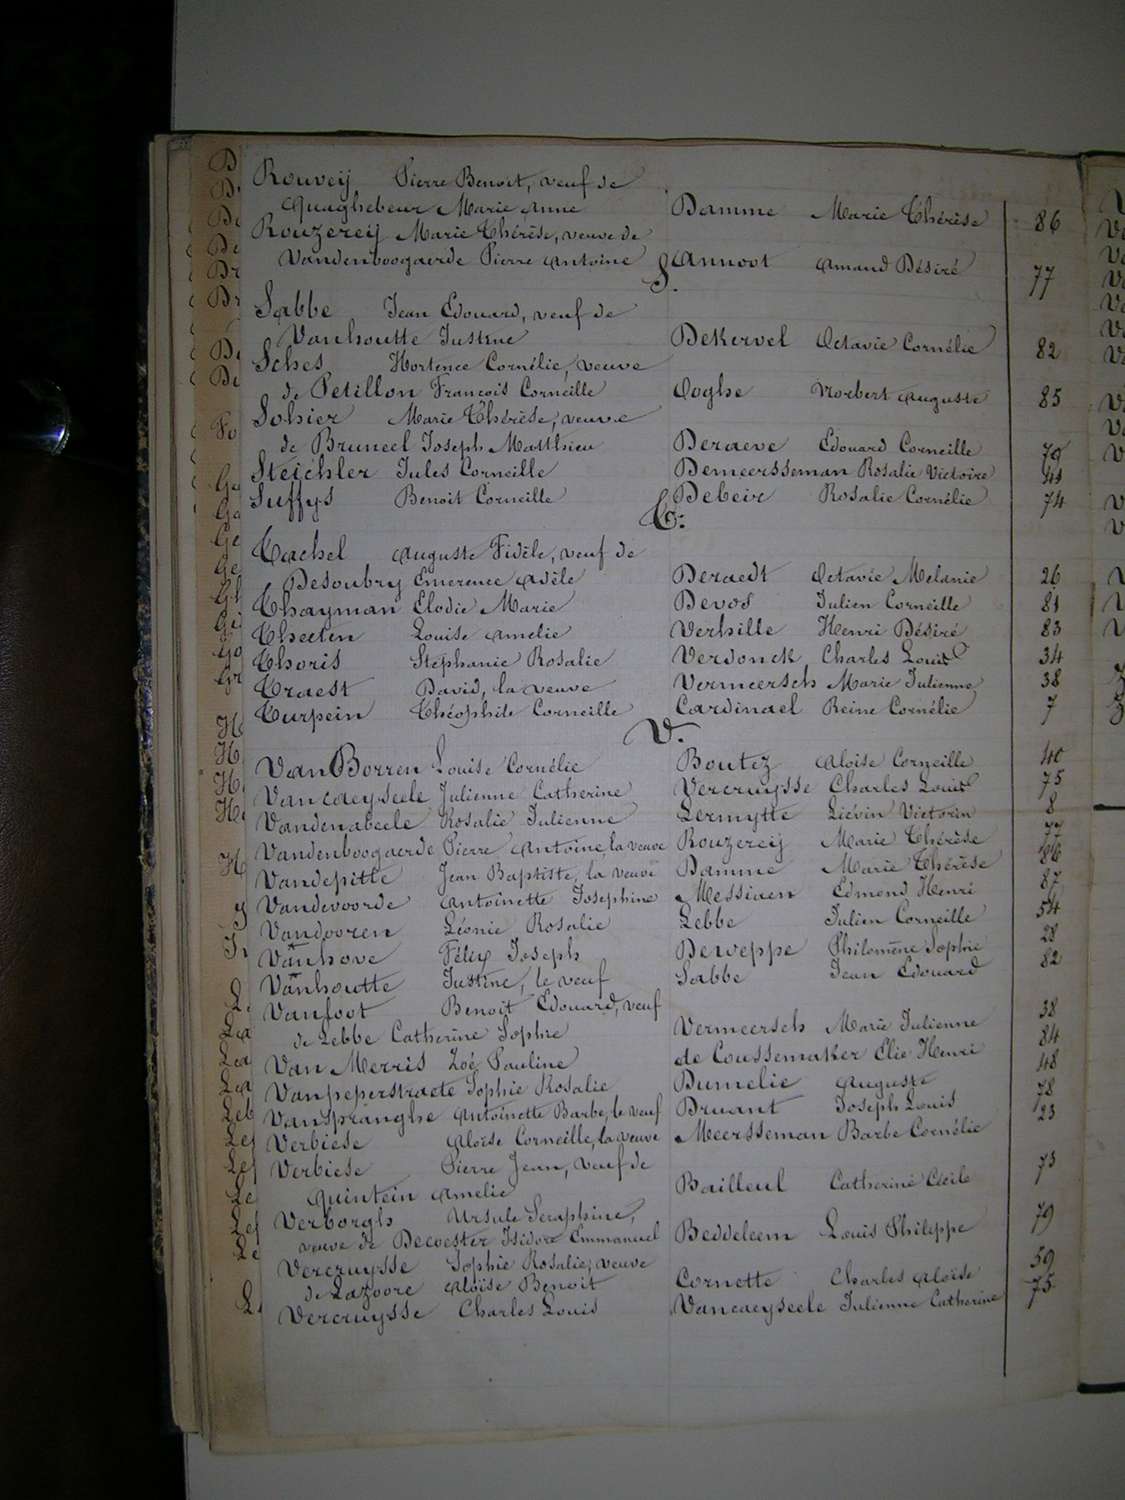 Rouvey Pierre Benoit, veuf de
Quaghebeur Marie Anne Damme Marie Thérèse 86
Rouzerey Marie Thérèse, veuve de
Vandenboogaerde Pierre Antoine Annoot Amand Désiré 77
S.
Sabbe Jean Edouard, veuf de
Vanhoutte Justine Dekervel Octavie Cornélie 82
Sches Hortence Cornélie, veuve
de Petillon François Corneille Ooghe Norbert Auguste 85
Sohier Marie Thérèse, veuve
de Bruneel Joseph Matthieu Deraeve Edouard Corneille 79
Steichler Jules Corneille Demeersseman Rosalie Victoire 41
Suffys Benoit Corneille Debeir Rosalie Cornélie 74
T.
Tachel Auguste Fidèle, veuf de
Desoubry Emerence Adèle Deraedt Octavie Melanie 26
Thayman Elodie Marie Devos Julien Corneille 81
Theeten Louise Amelie Verhille Henri Désiré 83
Thoris Stephanie Rosalie Verdonck Charles Louis 34
Traest David, la veuve Vermeersch Marie Julienne 38
Turpein Théophile Corneille Cardinael Reine Cornélie 7
V.
Van Borren Louise Cornélie Boutez Aloïse Corneille 40
Vancaeyseele Julienne Catherine Vercruysse Charles Louis 75
Vandenabeele Rosalie Julienne Lermytte Liévin Victorin 8
Vandenboogaerde Pierre Antoine, la veuve Rouzerey Marie Thérèse 77
Vandepitte Jean Baptiste, la veuve Damme Marie Thérèse 86
Vandevoorde Antoinette Josephine Messiaen Edmond Henri 87
Vandooren Léonie Rosalie Lebbe Julien Corneille 54
Vanhove Félix Joseph Deweppe Philomène Sophie 28
Vanhoutte Justine, le veuf Sabbe Jean Edouard 82
Vanloot Benoit Edouard, veuf
de Lebbe Catherine Sophie Vermeersch Marie Julienne 38
Van Merris Zoé Pauline de Coussemaker Elie Henri 84
Vanpeperstraete Sophie Rosalie Dumelie Auguste 48
Vanspranghe Antoinette Barbe, le veuf Bruant Joseph Louis 78
Verbiese Aloïse Corneille, la veuve Meersseman Barbe Cornélie 23
Verbiese Pierre Jean, veuf de
Quintein Amelie Bailleul Catherine Cécile 73
Verborgh Ursule Seraphine,
veuve de Decoester Isidore Emmanuel Beddeleem Louis Philippe 79
Vercruysse Sophie Rosalie, veuve
de Lazoore Aloïse Benoit Cornette Charles Aloïse 59
Vercruysse Charles Louis Vancaeyseele Julienne Catherine 75